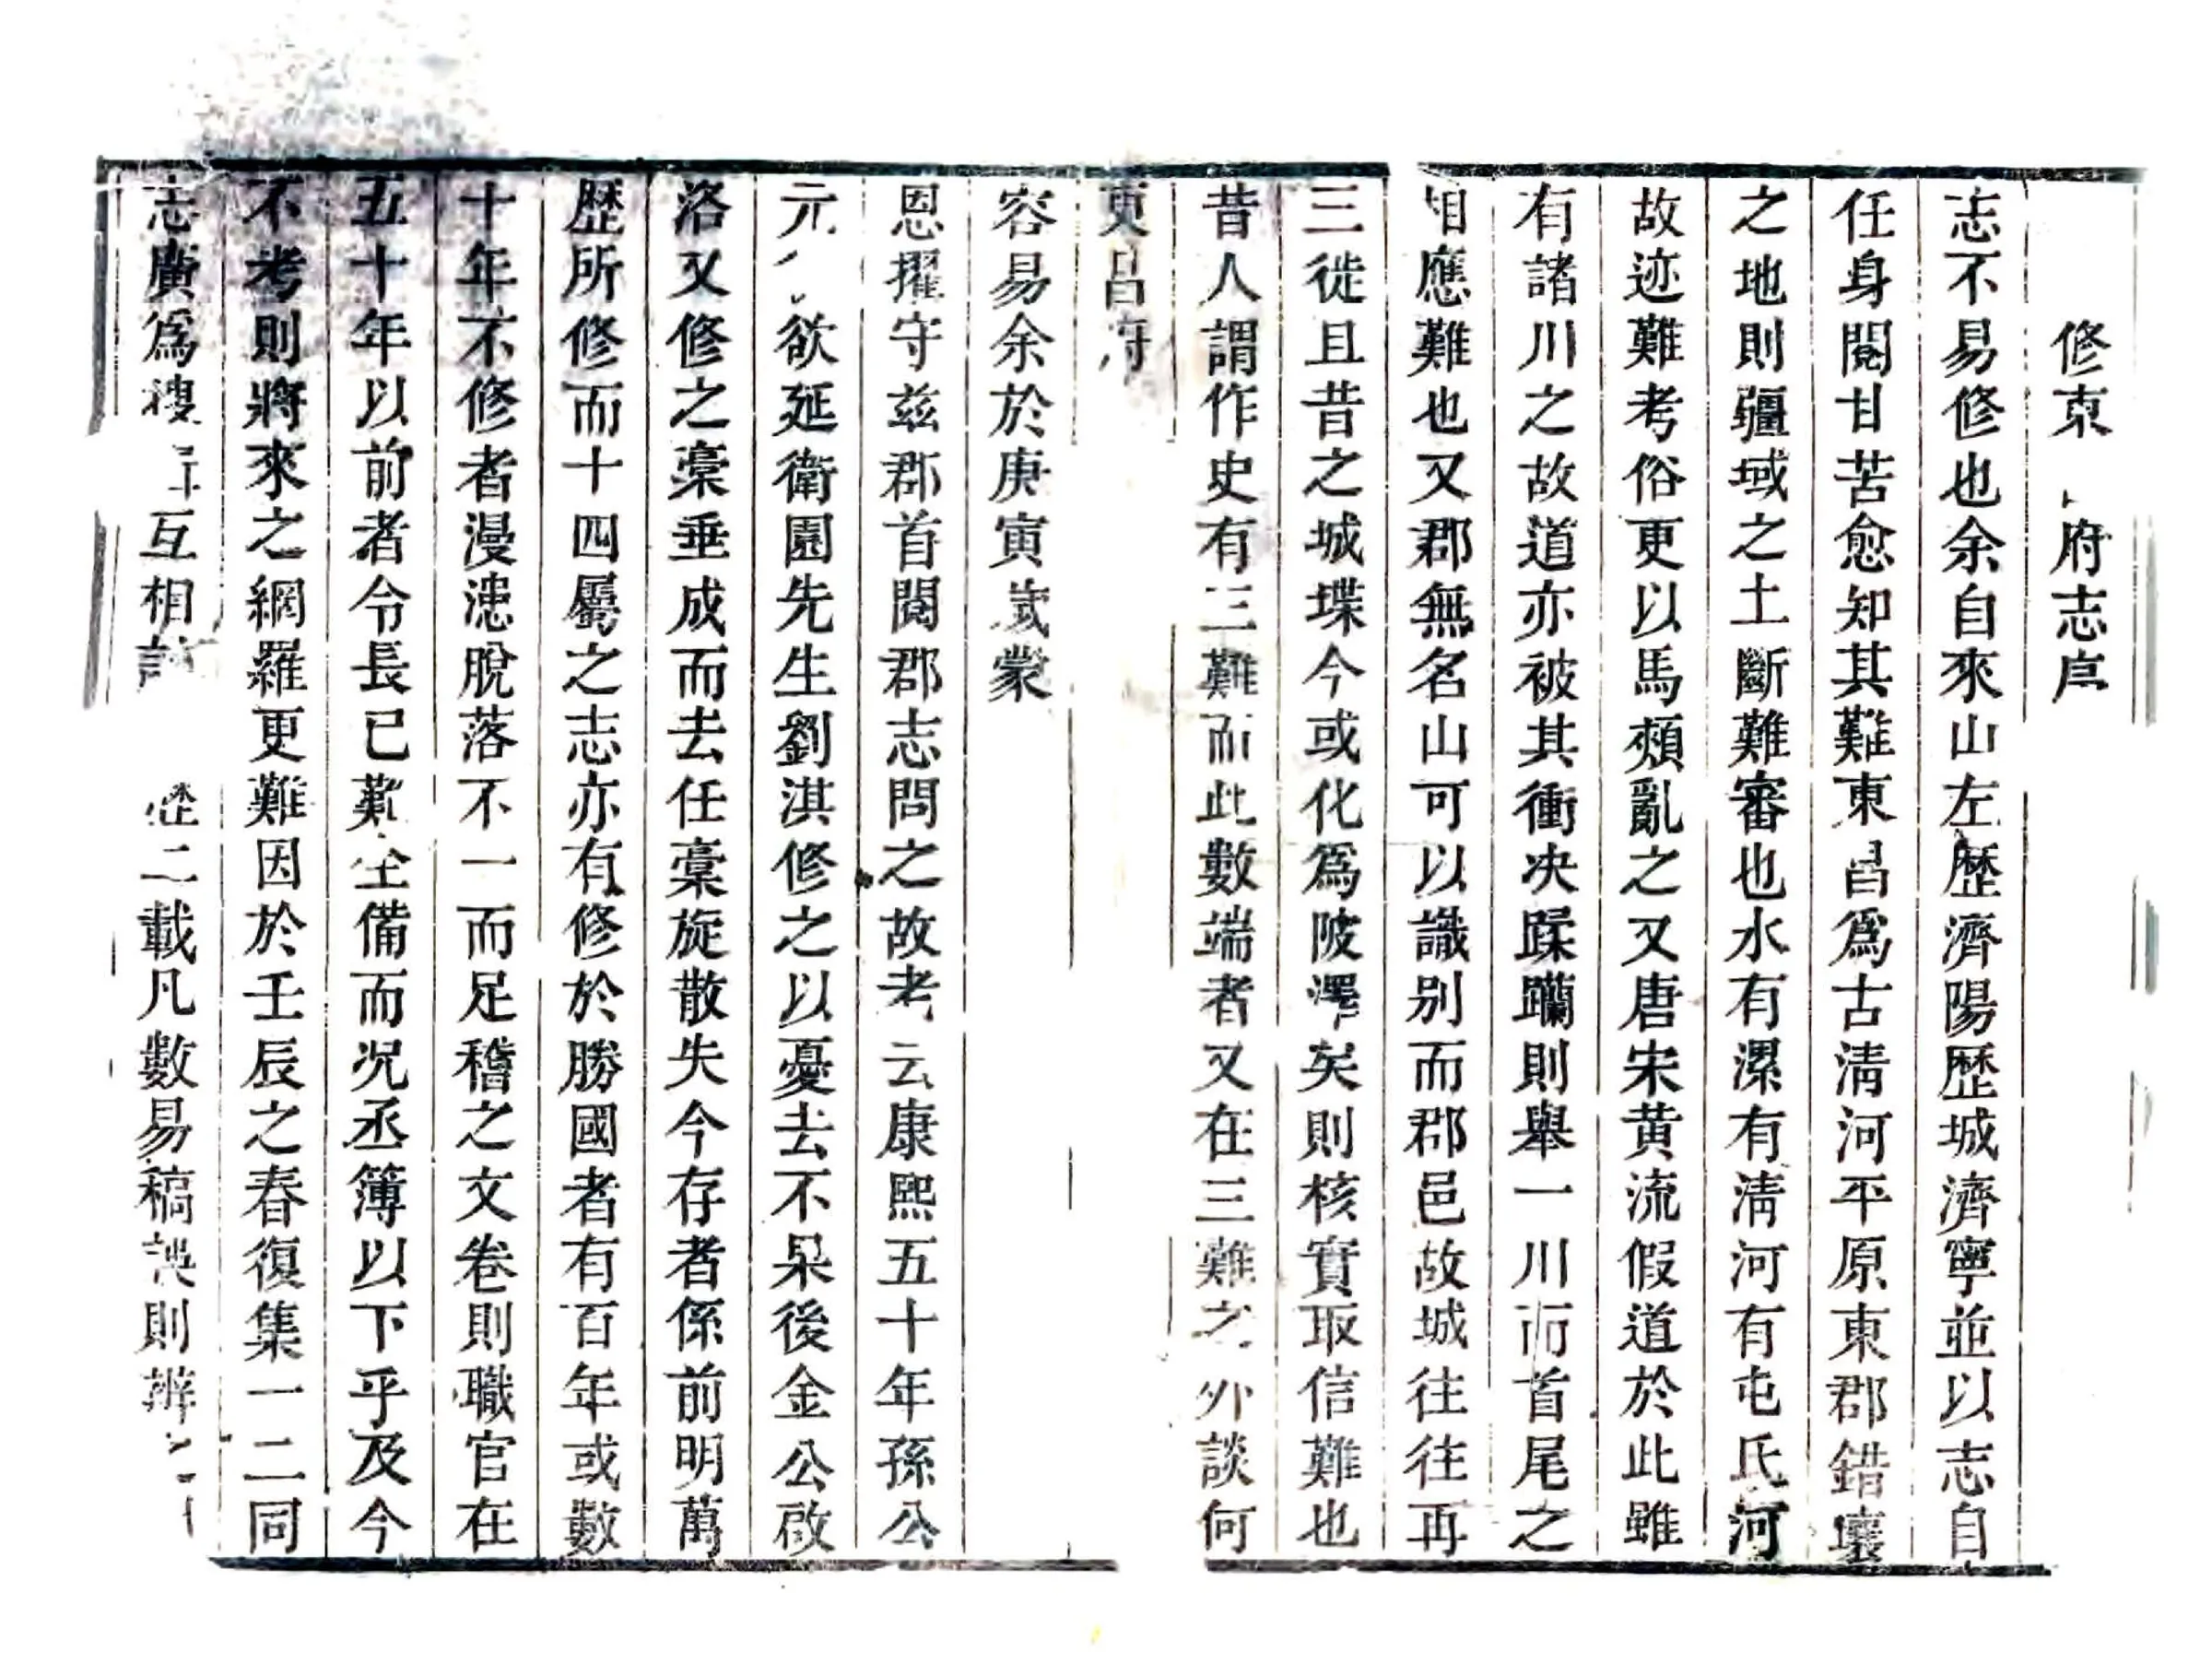 修東府志序
志不易修也余自來山左歷濟陽歷城濟寧並以志自
任身閱甘苦愈知其難東昌爲古清河平原東郡錯壤
之地則疆域之土斷難審也水有漯有清河有屯氏河
故迹難考俗更以馬頰亂之又唐宋黄流假道於此雖
有諸川之故道亦被其衝决蹂躪則舉一川而首尾之
相應難也又郡無名山可以識别而郡邑故城往往再
三徙且昔之城堞今或化爲陂澤矣則核實取信難也
昔人謂作史有三難而此數端者又在三難之外談何
東昌府
容易余於庚寅歲蒙
恩擢守兹郡首閱郡志問之故考云康熙五十年孫公
元欲延衛園先生劉淇修之以憂去不果後金公啟
洛又修之稾垂成而去任稾旋散失今存者係前明萬
歴所修而十四屬之志亦有修於勝國者有百年或數
十年不修者漫漶脫落不一而足稽之文卷則職官在
五十年以前者令長已難全備而况丞簿以下乎及今
不考則將來之網羅更難因於壬辰之春復集一二同
志廣爲互相二載凡數易稿誤則辨